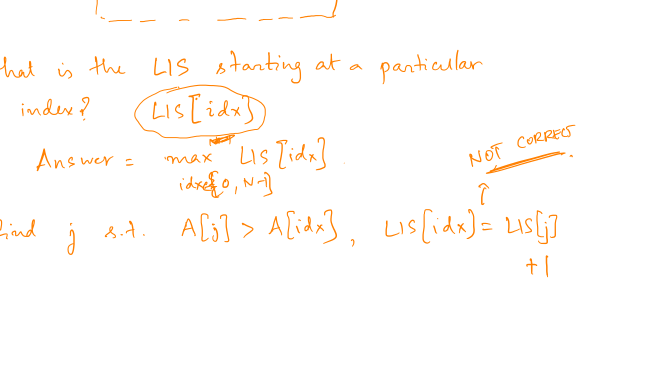 hat is the LIS starting at a particular
index? LIS[idx]
Answer = max LIS[idx]
idxε[0, N-1]
NOT CORRECT.
ind j s.t. A[j] > A[idx], LIS[idx] = LIS[j]
+1